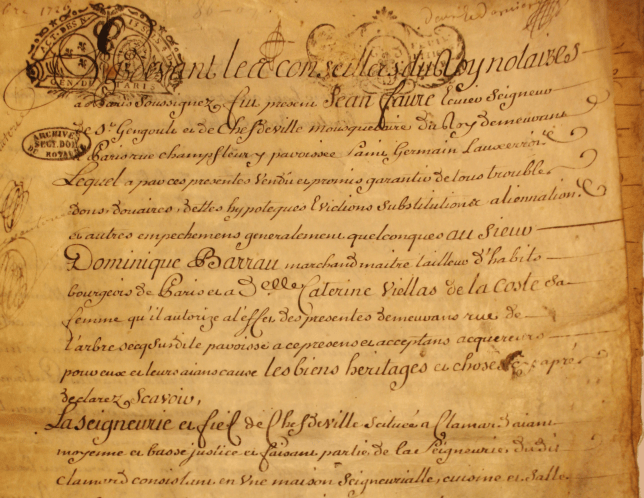 Pardevant les conseillers du Roy notaires
a Paris soussignez fut present Jean faure Ecuier Seigneur
de St. Gengoule et de Chefdeville mousquetaire du Roy demeurant
a Paris rue champfleury parroisse Saint Germain Lauxerrois
Lequel a par ces presentes Vendu et promis garantir de tous troubles
dons, douaires, dettes hypoteques Evictions Substitutions alienation
et autres empechemens generalement quelconques au sieur
Dominique Barrau marchand maitre tailleur d'habits
bourgeois de Paris et a Delle Caterine Viellas de la Coste sa
femme qu'il autorize a l'effet des presentes demeurans rue de
l'arbre secq susdite paroisse a ce presens et acceptans acquereurs
pour eux et leurs aians cause les biens heritages et choses cy aprés
declarez Scavoir,
La seigneurie et fief de Chefdeville scituée a Clamar aiant
moyenne et basse justice et faisant partie de la Seigneurie dudit
Clamord consistant en Une maison Seigneurialle, cuisine et Salle
ARCHIVES
SECT. DOM
ROYAL
ACT. DES
GEN. DE PARIS